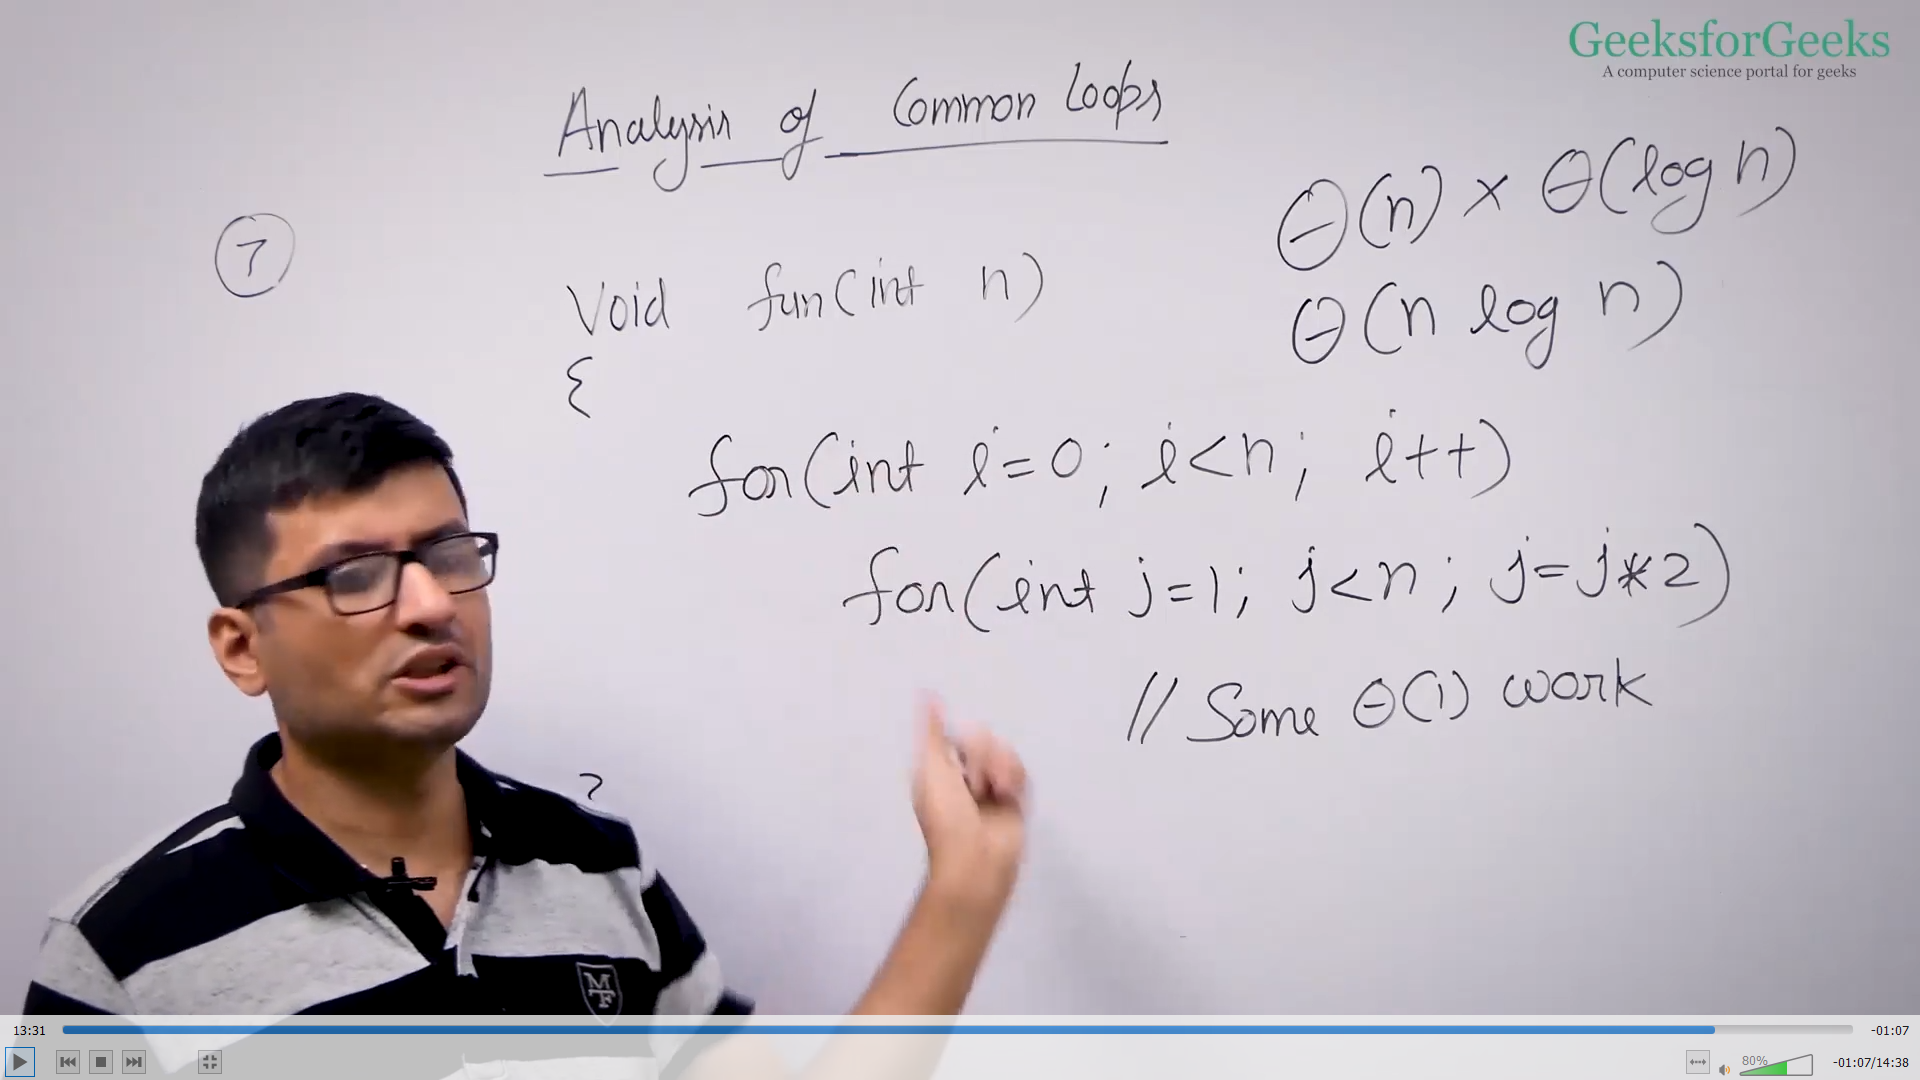 GeeksforGeeks
A computer science portal for geeks
Analysis of Common Loops
Θ(n) × Θ(log n)
7
Void fun(int n)
Θ(n log n)
{
for(int i=0; i<n; i++)
for(int j=1; j<n; j=j*2)
// Some Θ(1) work
MF
13:31
-01:07
80%
-01:07/14:38